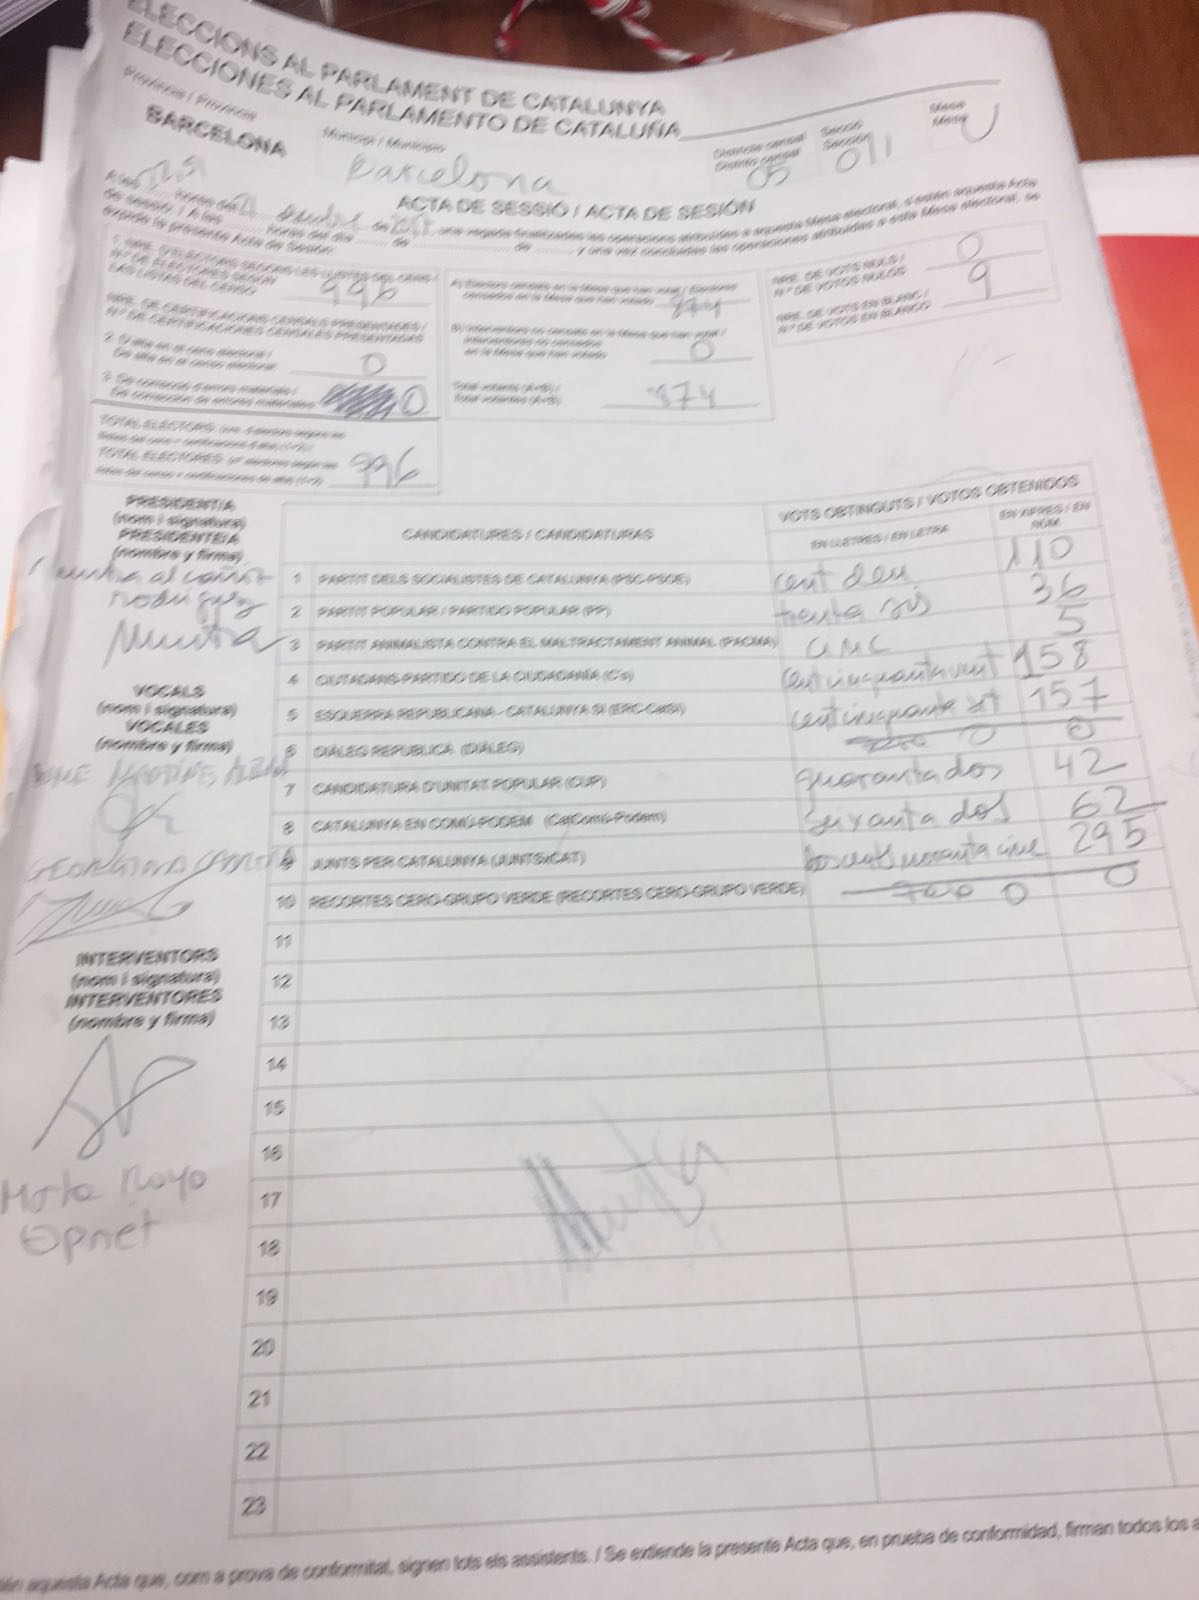 ELECCIONS AL PARLAMENT DE CATALUNYA
ELECCIONES AL PARLAMENTO DE CATALUÑA
Província / Provincia
BARCELONA
Municipi / Municipio
Barcelona
Districte censal
Distrito censal
05
Secció
Sección
011
Mesa
Mesa
U
ACTA DE SESSIÓ / ACTA DE SESIÓN
A les hores del de de , una vegada finalitzades les operacions atribuïdes a aquesta Mesa electoral, s'estén aquesta Acta
de sessió. / A las horas del día de de , y una vez concluidas las operaciones atribuidas a esta Mesa electoral, se
expide la presente Acta de Sesión.
1. NRE. D'ELECTORS SEGONS LES LLISTES DEL CENS /
N.º DE ELECTORES SEGÚN
LAS LISTAS DEL CENSO
996
NRE. DE CERTIFICACIONS CENSALS PRESENTADES /
N.º DE CERTIFICACIONES CENSALES PRESENTADAS
2. D'alta en el cens electoral /
De alta en el censo electoral
0
3. De correcció d'errors materials /
De corrección de errores materiales
0
TOTAL ELECTORS
TOTAL ELECTORES
996
A) Electors censats en la Mesa que han votat / Electores
censados en la Mesa que han votado
874
B) Interventors no censats en la Mesa que han votat /
Interventores no censados
en la Mesa que han votado
0
Total votants (A+B) /
Total votantes (A+B)
874
NRE. DE VOTS NULS /
N.º DE VOTOS NULOS
0
NRE. DE VOTS EN BLANC /
N.º DE VOTOS EN BLANCO
9
PRESIDENT/A
(nom i signatura)
PRESIDENTE/A
(nombre y firma)
Rodríguez
Muntsa
VOCALS
(nom i signatura)
VOCALES
(nombre y firma)
INTERVENTORS
(nom i signatura)
INTERVENTORES
(nombre y firma)
Royo
CANDIDATURES / CANDIDATURAS
VOTS OBTINGUTS / VOTOS OBTENIDOS
EN LLETRES / EN LETRA
EN XIFRES / EN NÚM.
1 PARTIT DELS SOCIALISTES DE CATALUNYA (PSC-PSOE) cent deu 110
2 PARTIT POPULAR / PARTIDO POPULAR (PP) trenta sis 36
3 PARTIT ANIMALISTA CONTRA EL MALTRACTAMENT ANIMAL (PACMA) cinc 5
4 CIUTADANS-PARTIDO DE LA CIUDADANÍA (C's) cent cinquanta vuit 158
5 ESQUERRA REPUBLICANA - CATALUNYA SÍ (ERC-CatSí) cent cinquanta set 157
6 DIÀLEG REPUBLICÀ (DIÀLEG) zero 0 0
7 CANDIDATURA D'UNITAT POPULAR (CUP) quaranta dos 42
8 CATALUNYA EN COMÚ-PODEM (CatComú-Podem) seixanta dos 62
9 JUNTS PER CATALUNYA (JUNTSxCAT) doscents noranta cinc 295
10 RECORTES CERO-GRUPO VERDE (RECORTES CERO-GRUPO VERDE) zero 0 0
11
12
13
14
15
16
17
18
19
20
21
22
23
aquesta Acta que, com a prova de conformitat, signen tots els assistents. / Se extiende la presente Acta que, en prueba de conformidad, firman todos los